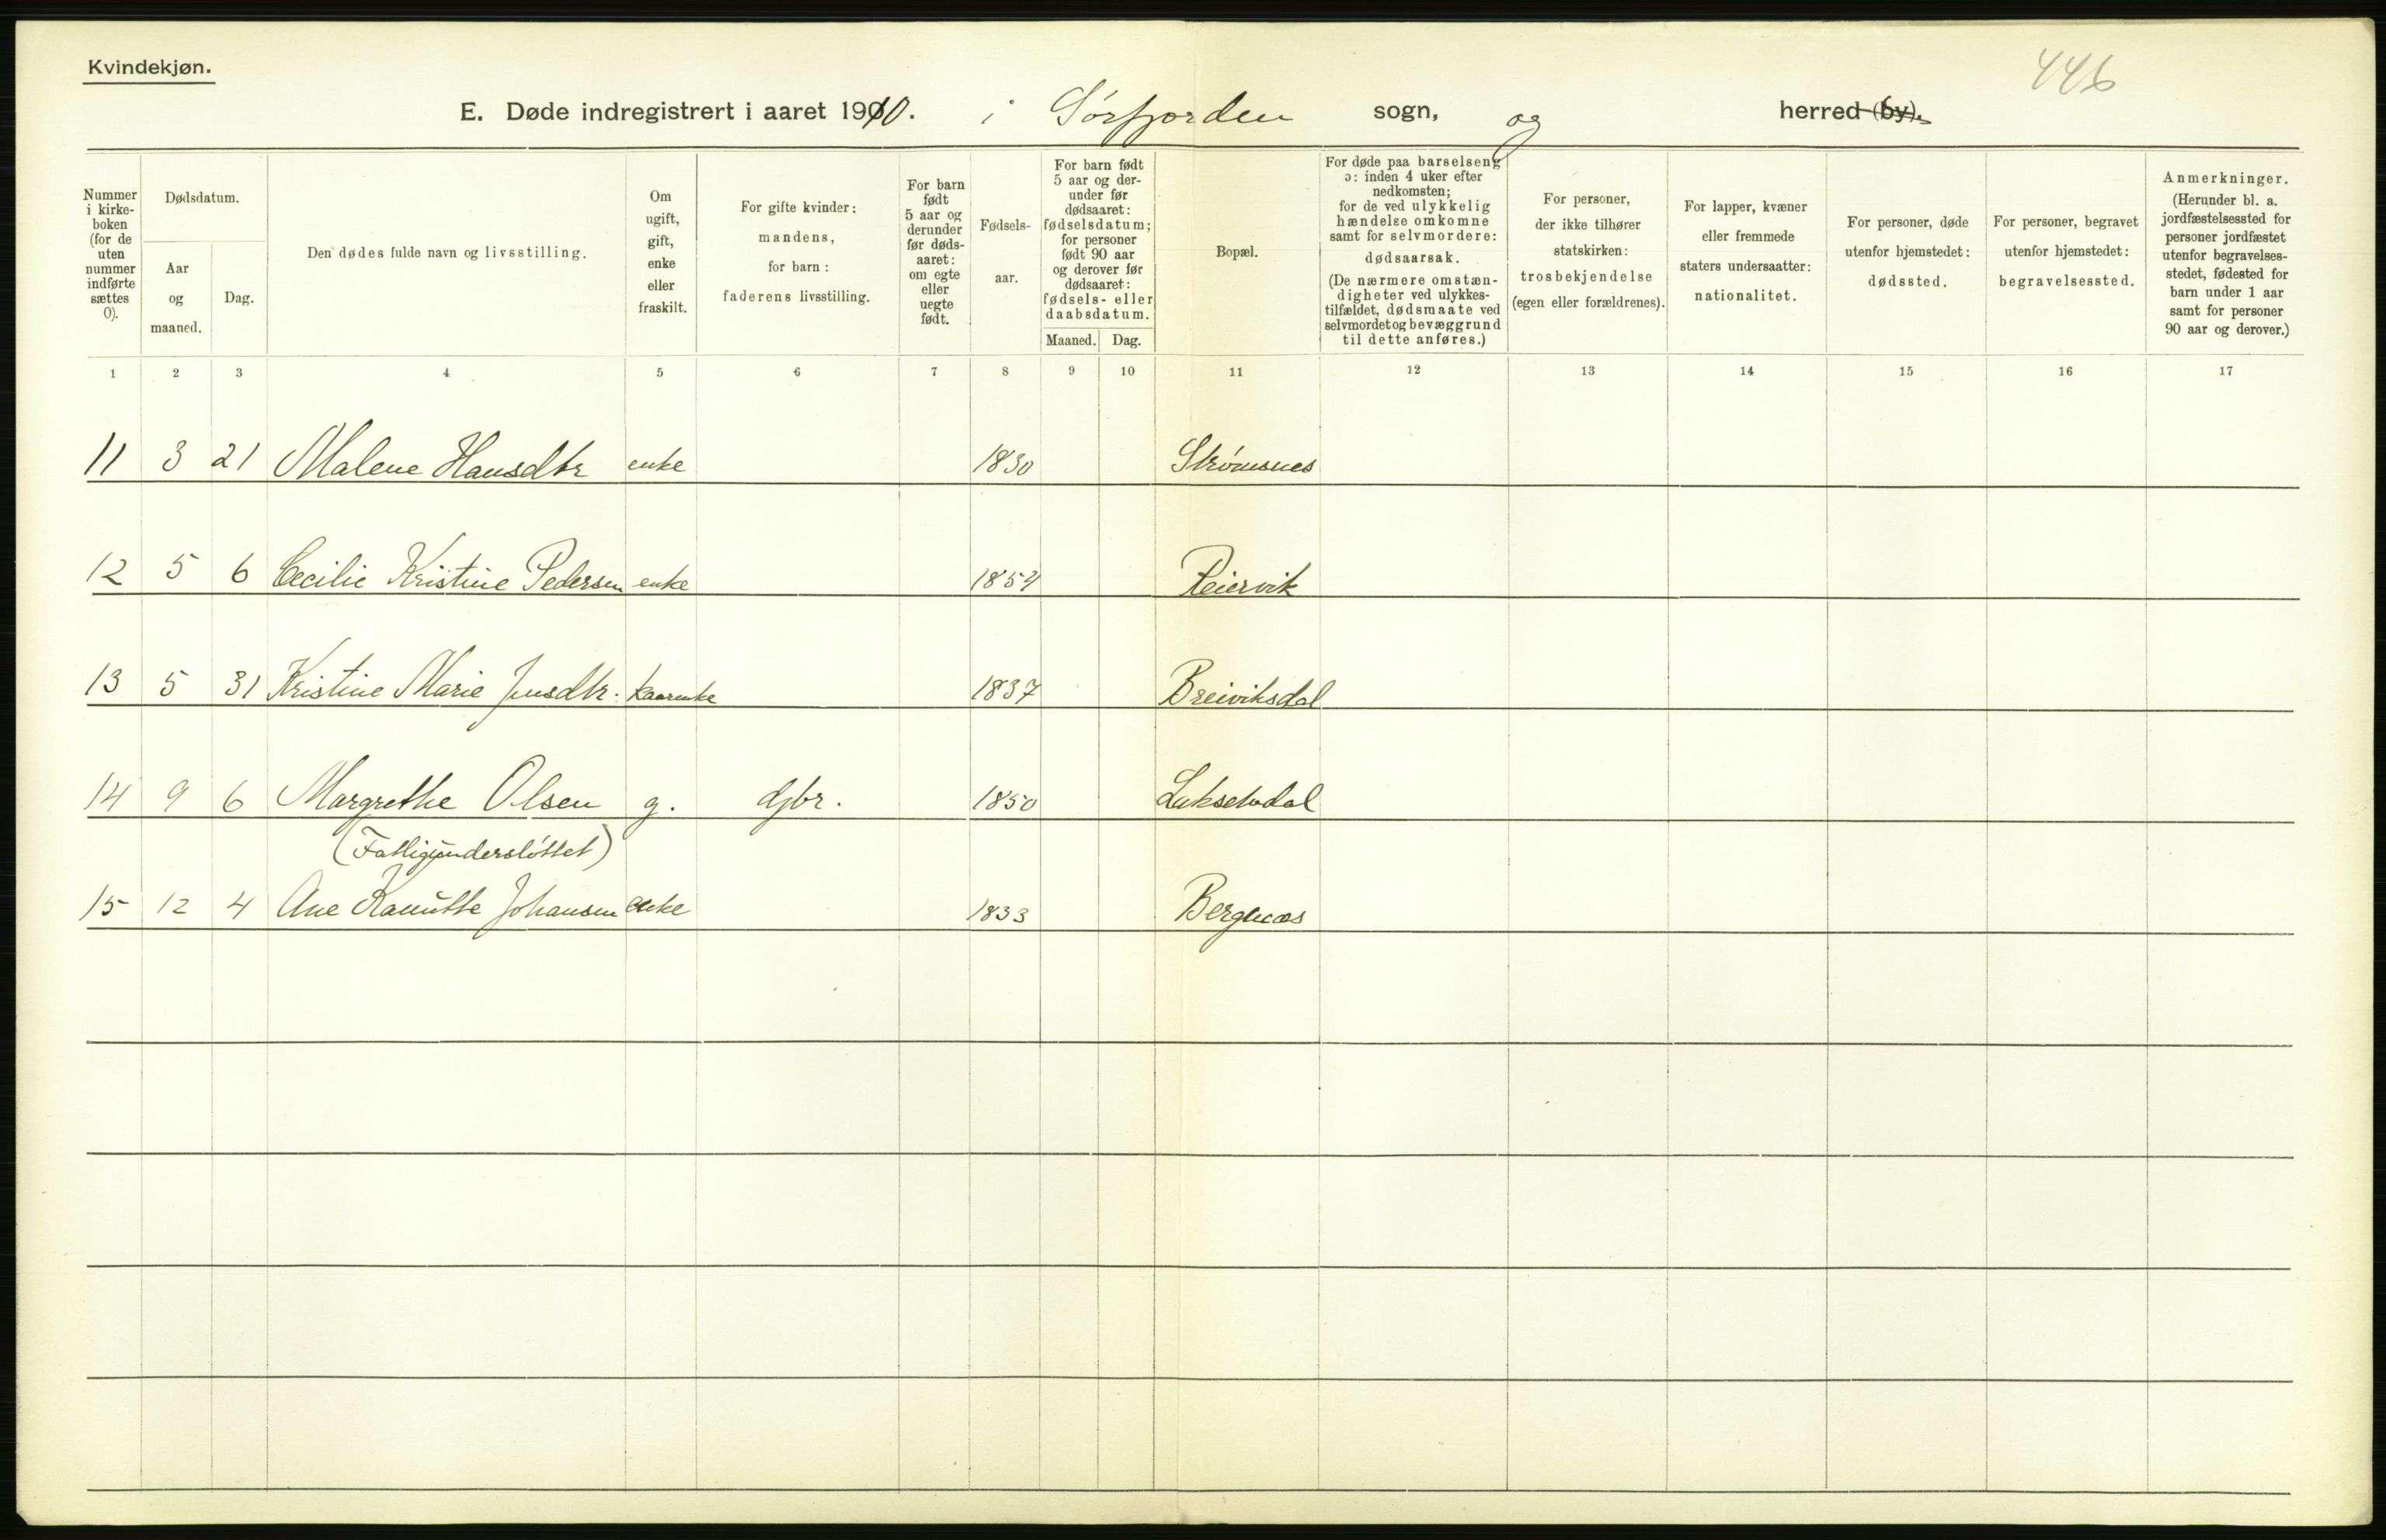 Kvindekjøn.
446
E. Døde indregistrert i aaret 1910. i Sørfjorden sogn, og herred (by).
Nummer i kirke-boken (for de uten nummer indførte sættes 0).
Dødsdatum.
Aar og maaned.
Dag.
Den dødes fulde navn og livsstilling.
Om ugift, gift, enke eller fraskilt.
For gifte kvinder: mandens, for barn: faderens livsstilling.
For barn født 5 aar og derunder før døds-aaret: om egte eller uegte født.
Fødsels-aar.
For barn født 5 aar og der-under før dødsaaret: fødselsdatum; for personer født 90 aar og derover før dødsaaret: fødsels- eller daabsdatum.
Maaned. Dag.
Bopæl.
For døde paa barselseng ɔ: inden 4 uker efter nedkomsten; for de ved ulykkelig hændelse omkomne samt for selvmordere: dødsaarsak. (De nærmere omstæn-digheter ved ulykkes-tilfældet, dødsmaate ved selvmordet og bevæggrund til dette anføres.)
For personer, der ikke tilhører statskirken: trosbekjendelse (egen eller forældrenes).
For lapper, kvæner eller fremmede staters undersaatter: nationalitet.
For personer, døde utenfor hjemstedet: dødssted.
For personer, begravet utenfor hjemstedet: begravelsessted.
Anmerkninger. (Herunder bl. a. jordfæstelsessted for personer jordfæstet utenfor begravelses-stedet, fødested for barn under 1 aar samt for personer 90 aar og derover.)
1 2 3 4 5 6 7 8 9 10 11 12 13 14 15 16 17
11 3 21 Malene Hansdtr enke 1830 Strømsnes
12 5 6 Cecilie Kristine Pedersen enke 1854 Reiervik
13 5 31 Kristine Marie Jensdtr. kaarenke 1837 Breiviksdal
14 9 6 Margrethe Olsen g. gbr. 1850 Lakselvdal
(Fattigunderstøttet)
15 12 4 Ane Kanutte Johansen enke 1833 Bergnæs